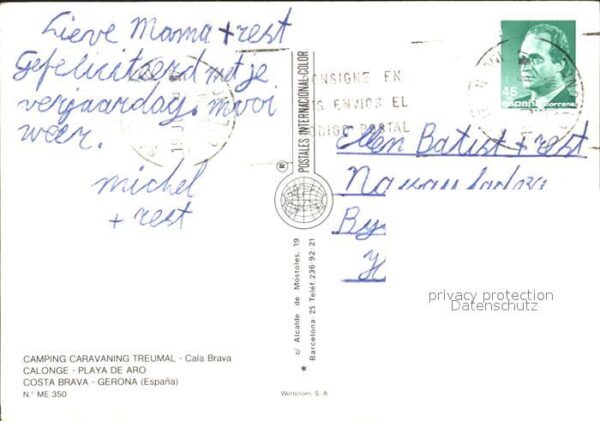 Lieve Mama + rest
Gefeliciteerd met je
verjaardag. mooi
weer.
michel
+ rest
CAMPING CARAVANING TREUMAL - Cala Brava
CALONGE - PLAYA DE ARO
COSTA BRAVA - GERONA (España)
N.° ME 350
POSTALES INTERNACIONAL-COLOR
®
c/ Alcalde de Móstoles, 19
Barcelona-25 Teléf. 236 92 21
Werticolor, S. A.
ONSIGNE EN
US ENVIOS EL
ODIGO POSTAL
45
españa correos
Ellen Batist + rest
Nassau
By
H
privacy protection
Datenschutz